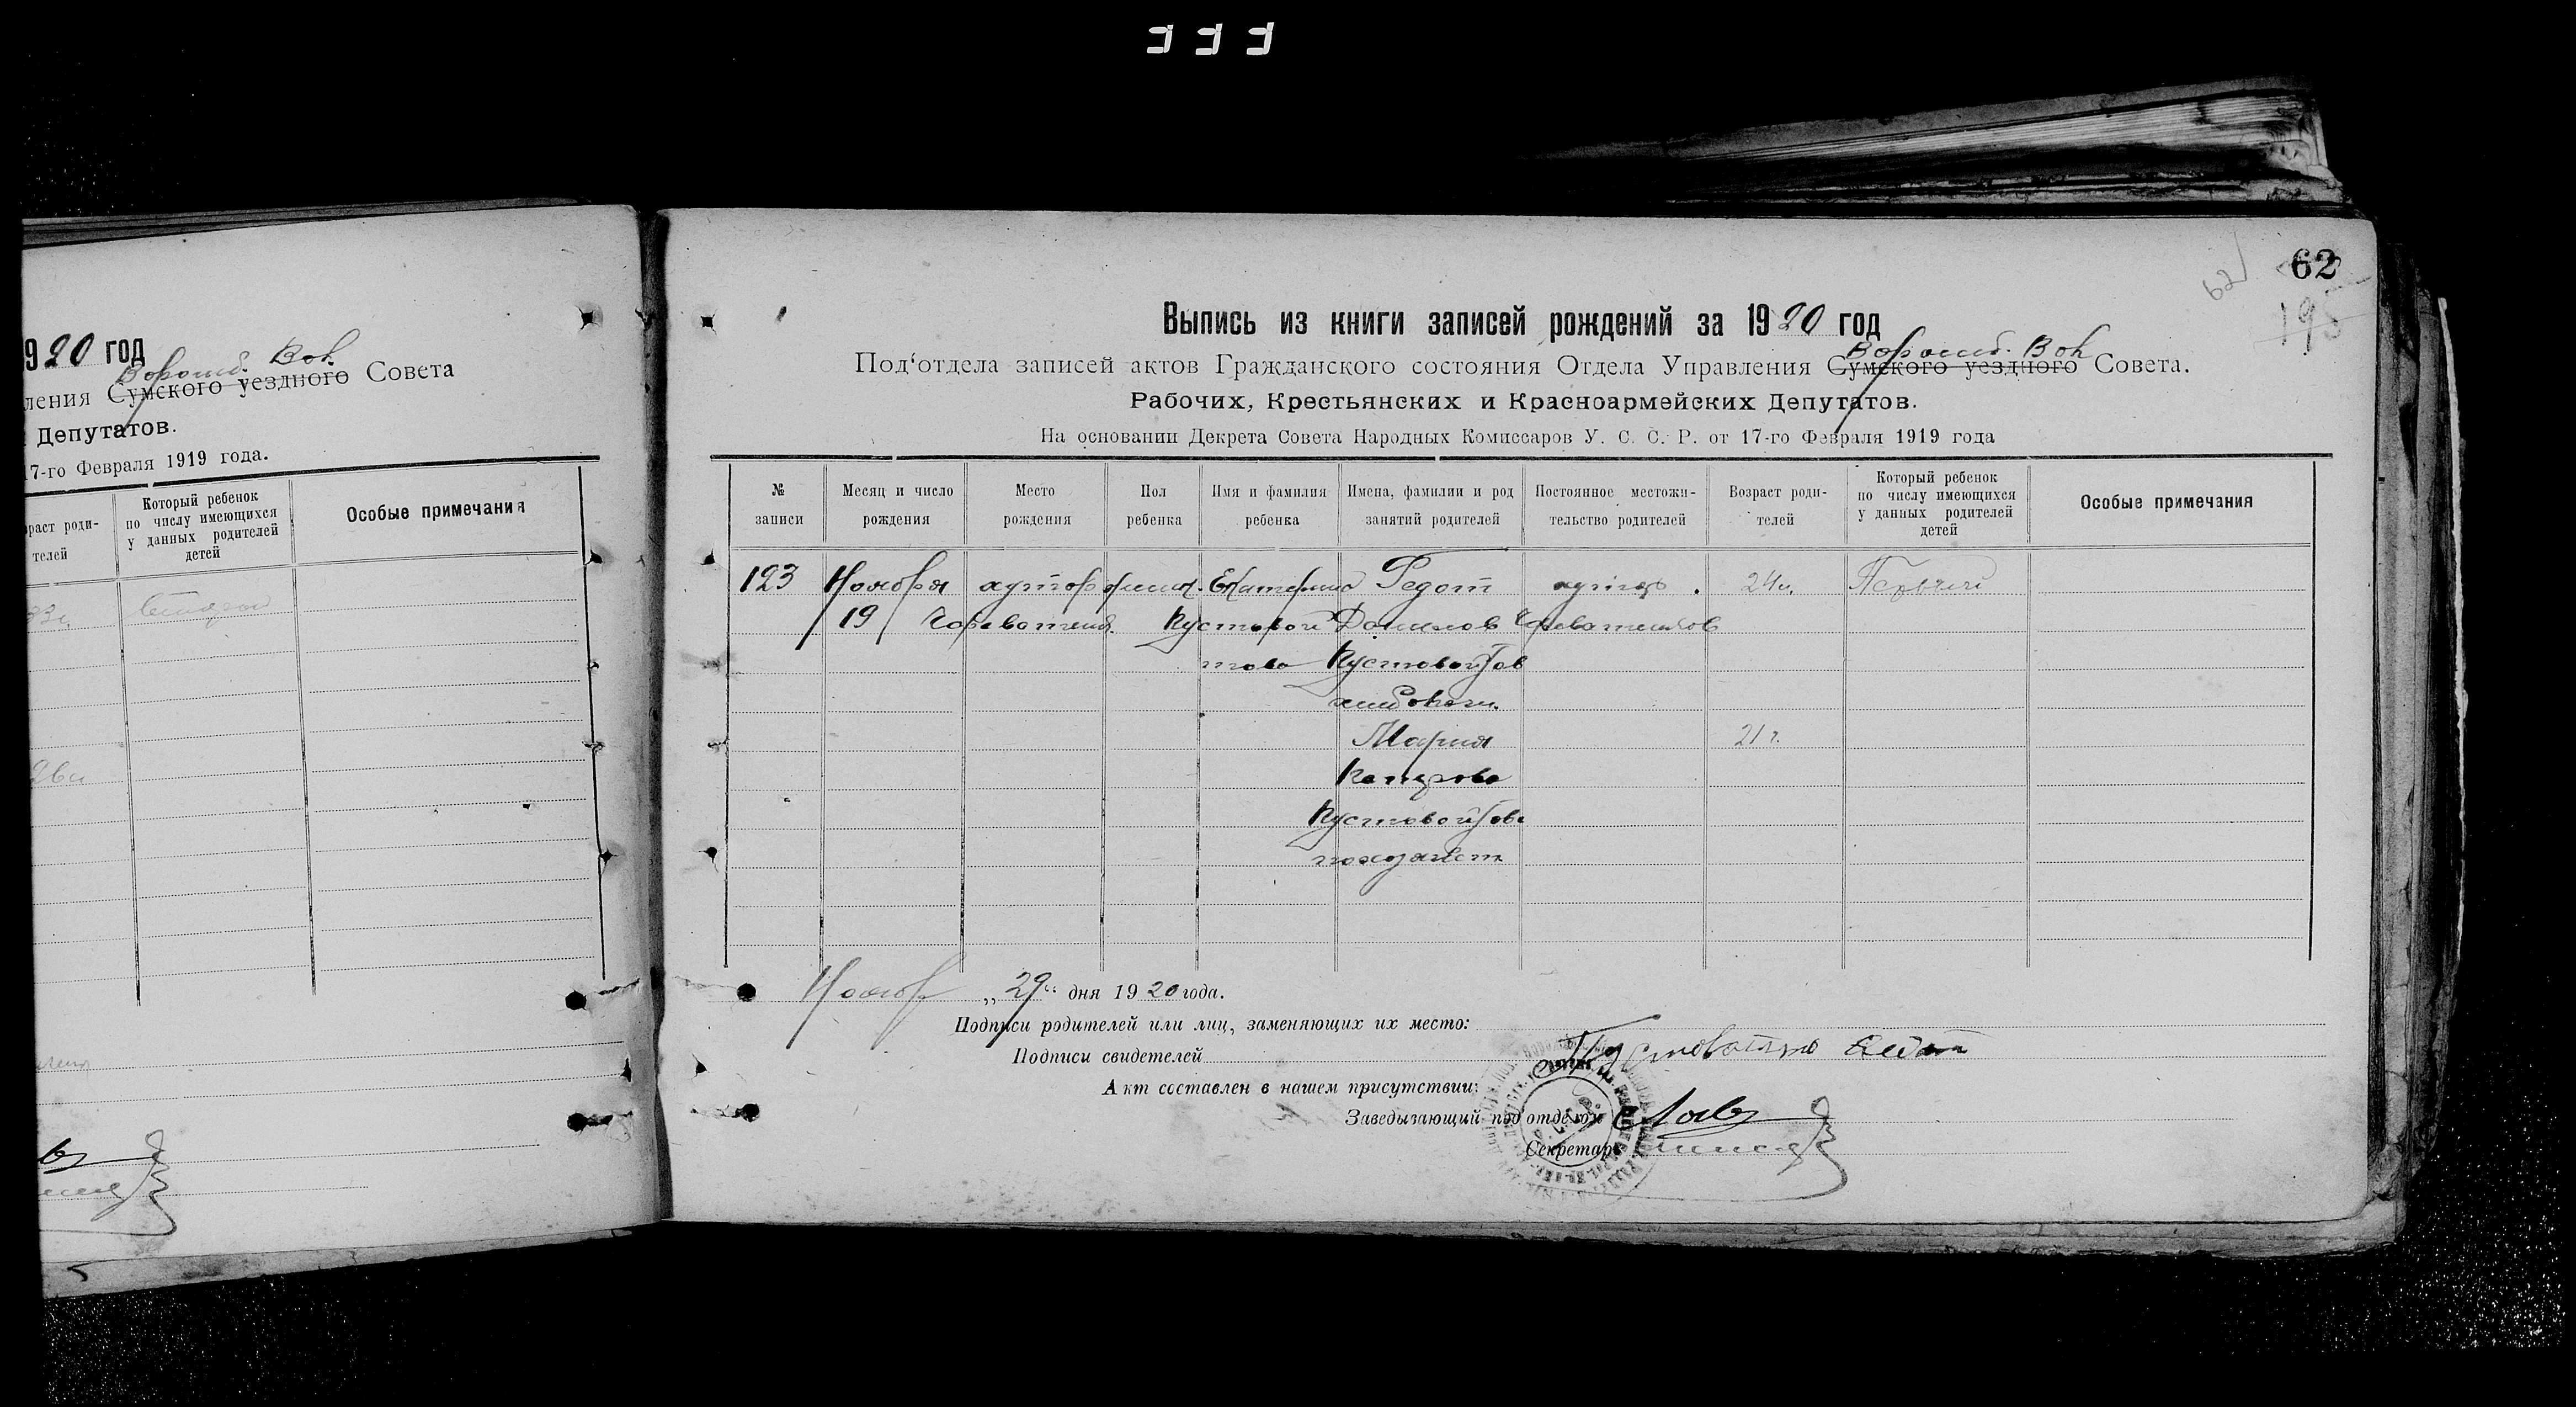 920 год
Ворожб. Вол.
ления Сумского уездного Совета
Депутатов.
17-го Февраля 1919 года.
раст роди-
телей
Который ребенок
по числу имеющихся
у данных родителей
детей
Особые примечания
Второй
62
62
195
Выпись из книги записей рождений за 1920 год
Ворожб. Вол
Под'отдела записей актов Гражданского состояния Отдела Управления Сумского уездного Совета.
Рабочих, Крестьянских и Красноармейских Депутатов.
На основании Декрета Совета Народных Комиссаров У. С. С. Р. от 17-го Февраля 1919 года
№
записи
Месяц и число
рождения
Место
рождения
Пол
ребенка
Имя и фамилия
ребенка
Имена, фамилии и род
занятий родителей
Постоянное местожи-
тельство родителей
Возраст роди-
телей
Который ребенок
по числу имеющихся
у данных родителей
детей
Особые примечания
123 Ноября хутор женск. Екатерина Федот хутор 24 л. Первый
19 Пустовой Данилов
това Пустовойтов
хлебопаш.
Мария 21 г.
Петрова
Пустовойтова
Нояб „29“ дня 1920 года.
Подписи родителей или лиц, заменяющих их место:
Подписи свидетелей
Акт составлен в нашем присутствии:
Заведывающий под'отделом
Секретарь